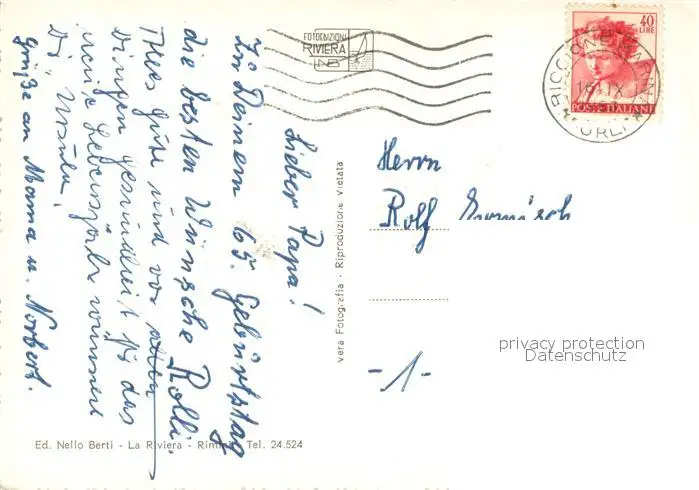 FOTOEDIZIONI
RIVIERA
40
LIRE
RICCIONE MARINA
16. IX.
FORLI
POSTE ITALIANE
Lieber Papa!
Zu Deinem 65. Geburtstag
die besten Wünsche Rolli.
Alles Gute und vor allen
Dingen Gesundheit für das
neue Lebensjahr wünscht
Dir Ursula.
Grüße an Mama u. Norbert.
vera Fotografia - Riproduzione vietata
Herrn
Rolf
-1-
privacy protection
Datenschutz
Ed. Nello Berti - La Riviera - Rimini - Tel. 24.524